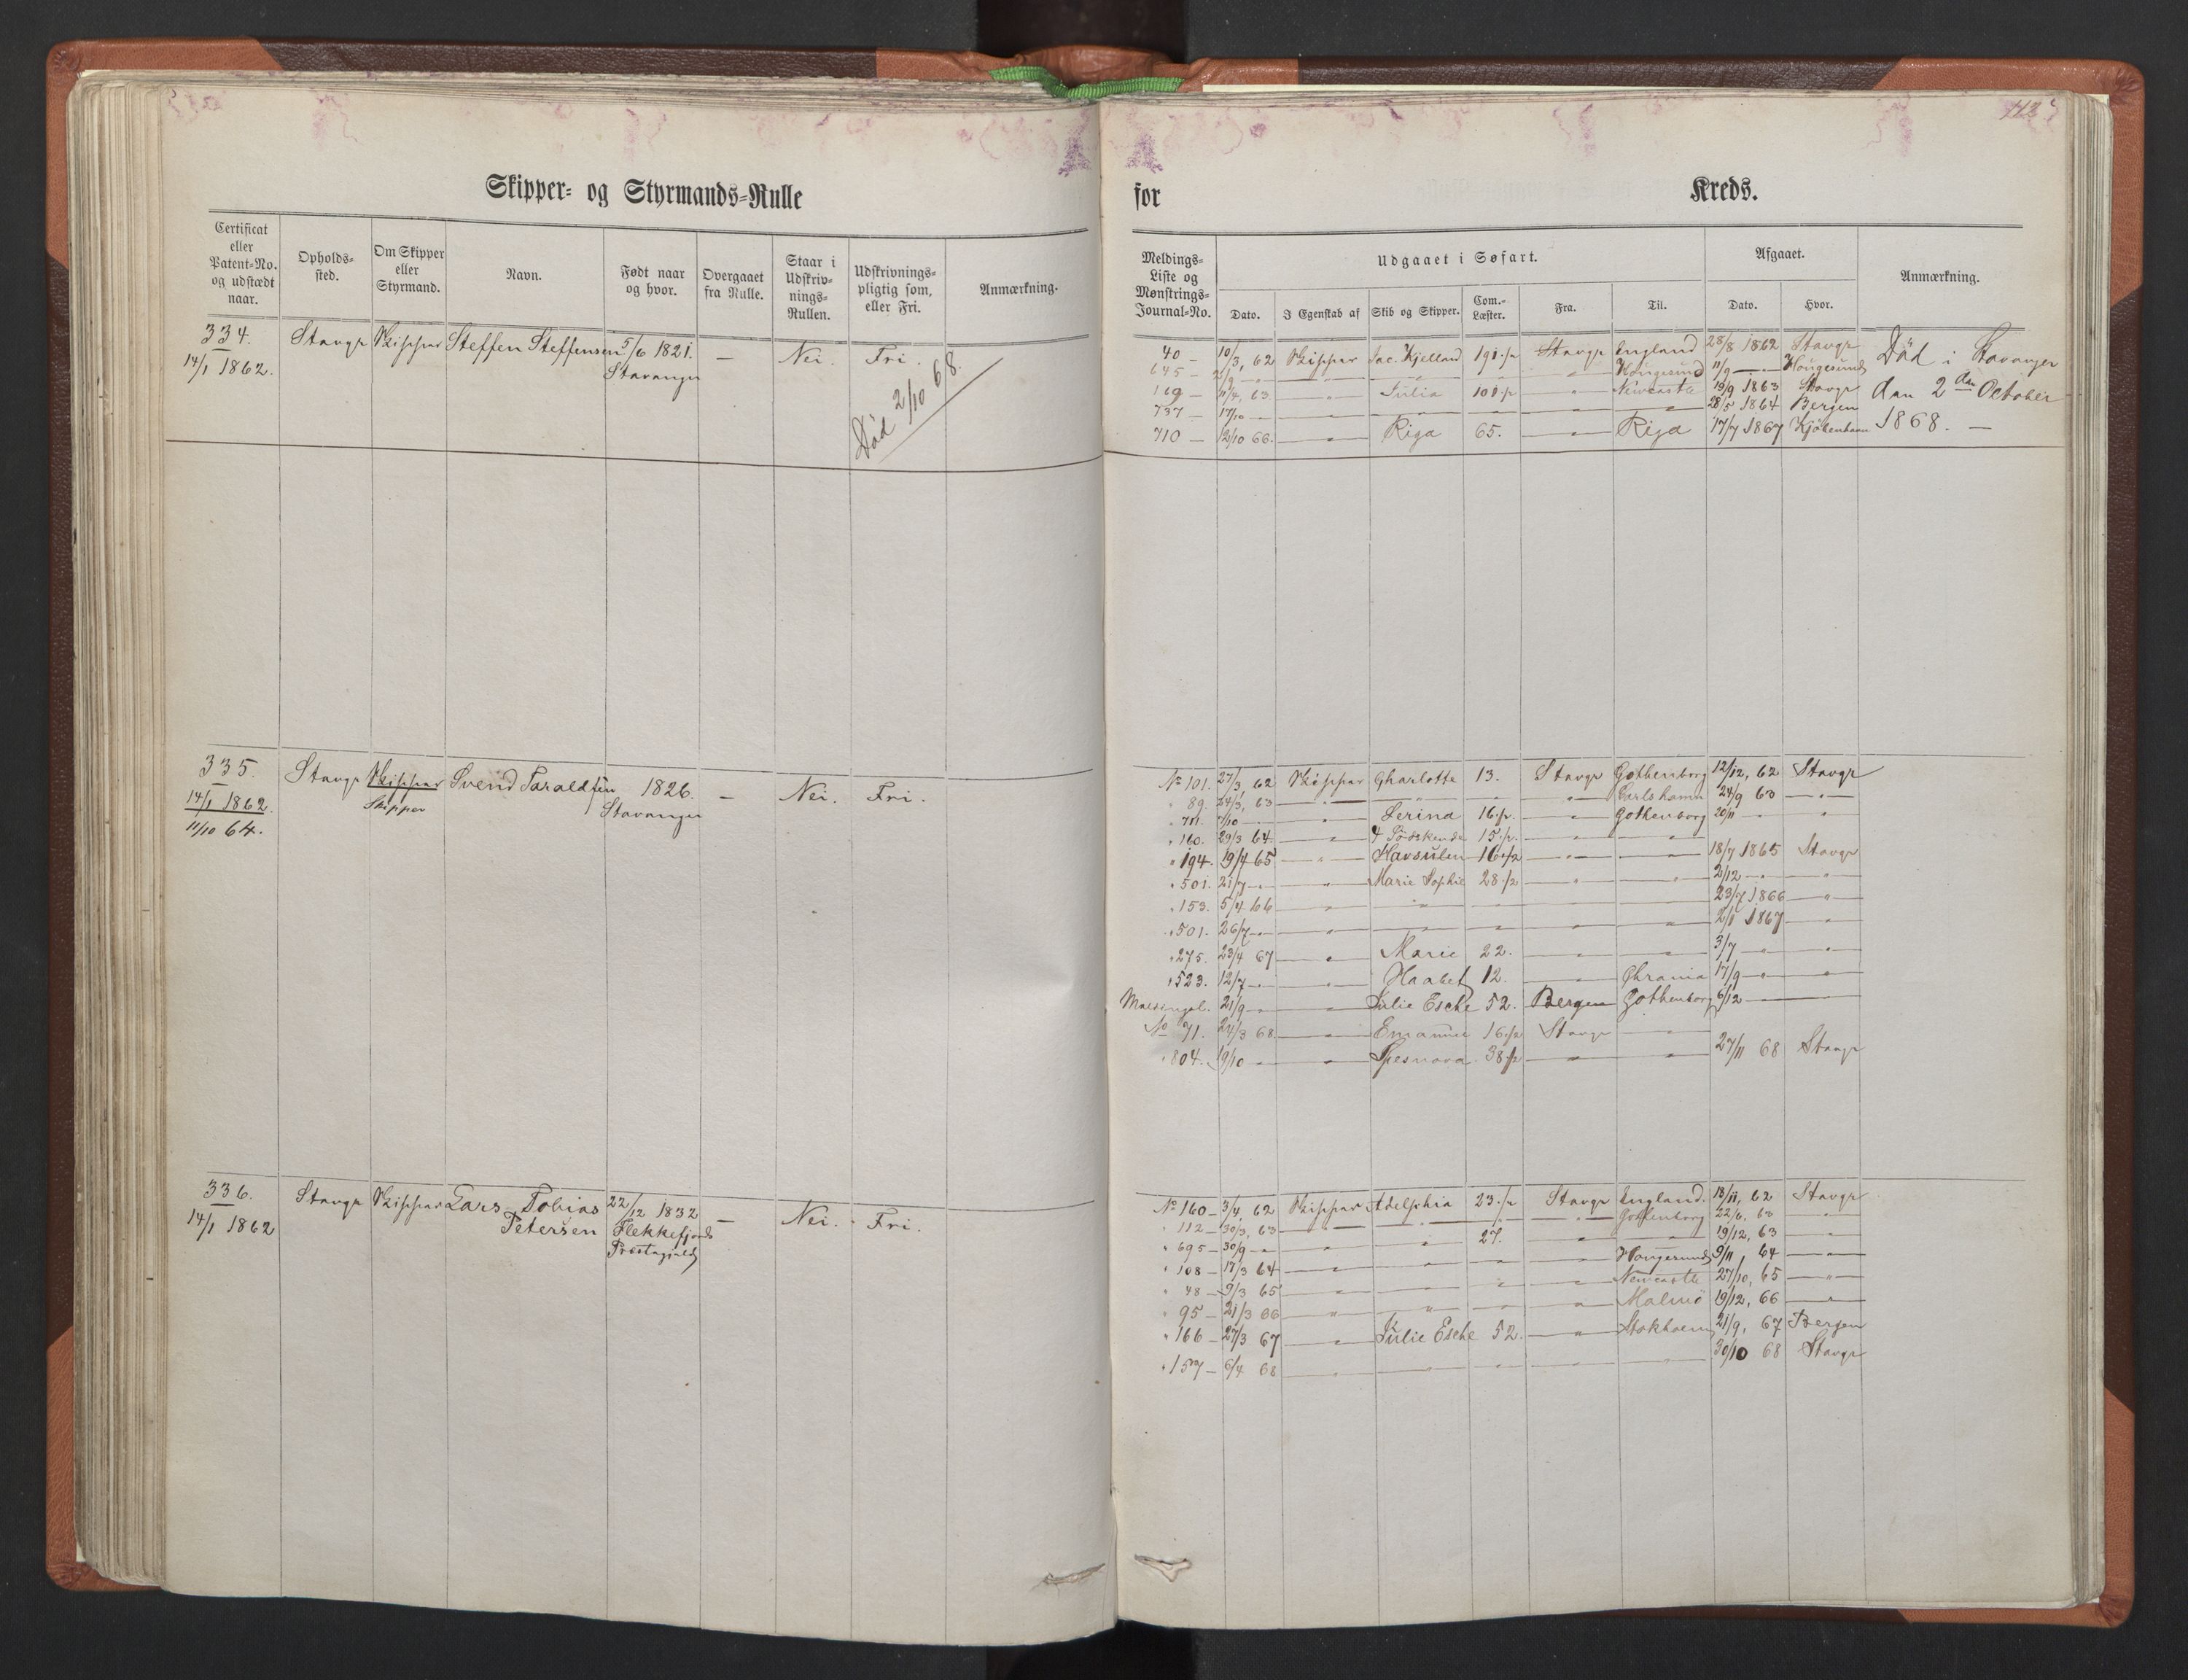 Skipper- og Styrmands-Rulle
for Kreds.
Certificat eller Patent-No. og udstædt naar.
Opholds-sted.
Om Skipper eller Styrmand.
Navn.
Født naar og hvor.
Overgaaet fra Rulle.
Staar i Udskriv-nings-Rullen.
Udskrivnings-pligtig som, eller Fri.
Anmærkning.
Meldings-Liste og Mønstrings-Journal-No.
Udgaaet i Søfart.
Dato.
I Egenskab af
Skib og Skipper.
Com.-Læster.
Fra.
Til.
Afgaaet.
Dato.
Hvor.
Anmærkning.
334. Stavgr Skipper Steffen Steffensen 5/6 1821. — Nei. Fri.
14/1 1862. Stavanger
Død 2/10 68.
40 — 10/3, 62 Skipper Jac. Kjelland 191 Stavgr England 28/8 1862 Stavgr
645 — — Høugesund 11/9 — Høugesund
169 — 11/4, 63 — Julia — Newcastle 19/9 1863 Stavgr
737 — 17/10 — 28/5 1864 Bergen
710 — 12/10 66. — Riga 65. — Riga 17/7 1867 Kjöbenhavn
Död i Stavanger
den 2den October
1868. —
335. Stavgr Skipper Svend Taraldsen 1826. — Nei. Fri.
14/1 1862. Skipper Stavanger
11/10 64.
No 101. 27/3, 62 Skipper Charlotte 13. Stavgr Gothenborg 12/12, 62 Stavgr
" 89. 24/3, 63 — " — Carlshamn 24/9 63 — " —
" 711. 7/10 — " Serina 16 1/2 — Gothenborg 20/11 — "
" 160. 29/3 64. — 4 Södskende 15 1/2 — —
" 194. 19/4 65 — " Havsulen 16 1/2 — — 18/7 1865 Stavgr
" 501. 21/7 — " Marie Sophie 28 1/2 — — 2/12 — "
" 153. 5/4 66 — " — — 23/7 1866 — "
" 501. 26/7 — " — — 2/1 1867 — "
" 275. 23/4 67 — " Marie 22. — — 3/7 — "
" 523. 12/7 — " Haabet 12. — Chrania 17/9 — "
21/9 — Julie Esche 52. Bergen Gothenborg 6/12 —
No 71. 24/3 68. — Emanuel 16 1/2 Stavgr —
" 804. 19/10 — " Spesnova 38 1/2 — — 27/11 68 Stavgr
336. Stavgr Skipper Lars Tobias 22/12 1832 — Nei. Fri.
14/1 1862 Petersen Flekkefjords
Præstegjeld
No 160 — 3/4 62 Skipper Adelphia 23 1/2 Stavgr England. 18/11, 62 Stavgr
" 112 — 30/3, 63 — " — Gothenborg 22/6. 63 "
" 695 — 30/9 — " 27. — — 19/12, 63 "
" 108 — 17/3 64 — — Høugesund 9/11, 64 — " —
" 48 — 9/3 65 — — Newcastle 27/10, 65 — " —
" 95 — 21/3 66 — " — Malmö 19/12, 66 — " —
" 166 — 27/3 67 — " Julie Esche 52. — Stokholm 21/9, 67 Bergen
" 157 — 6/4 68 — — — 30/10 68 Stavgr